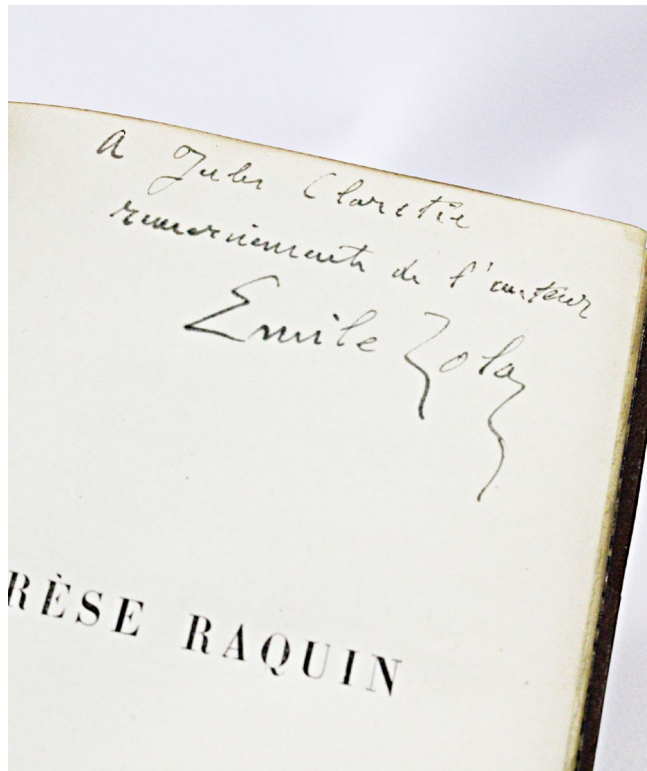 A Jules Claretie
remerciements de l'auteur
Emile Zola
RÈSE RAQUIN